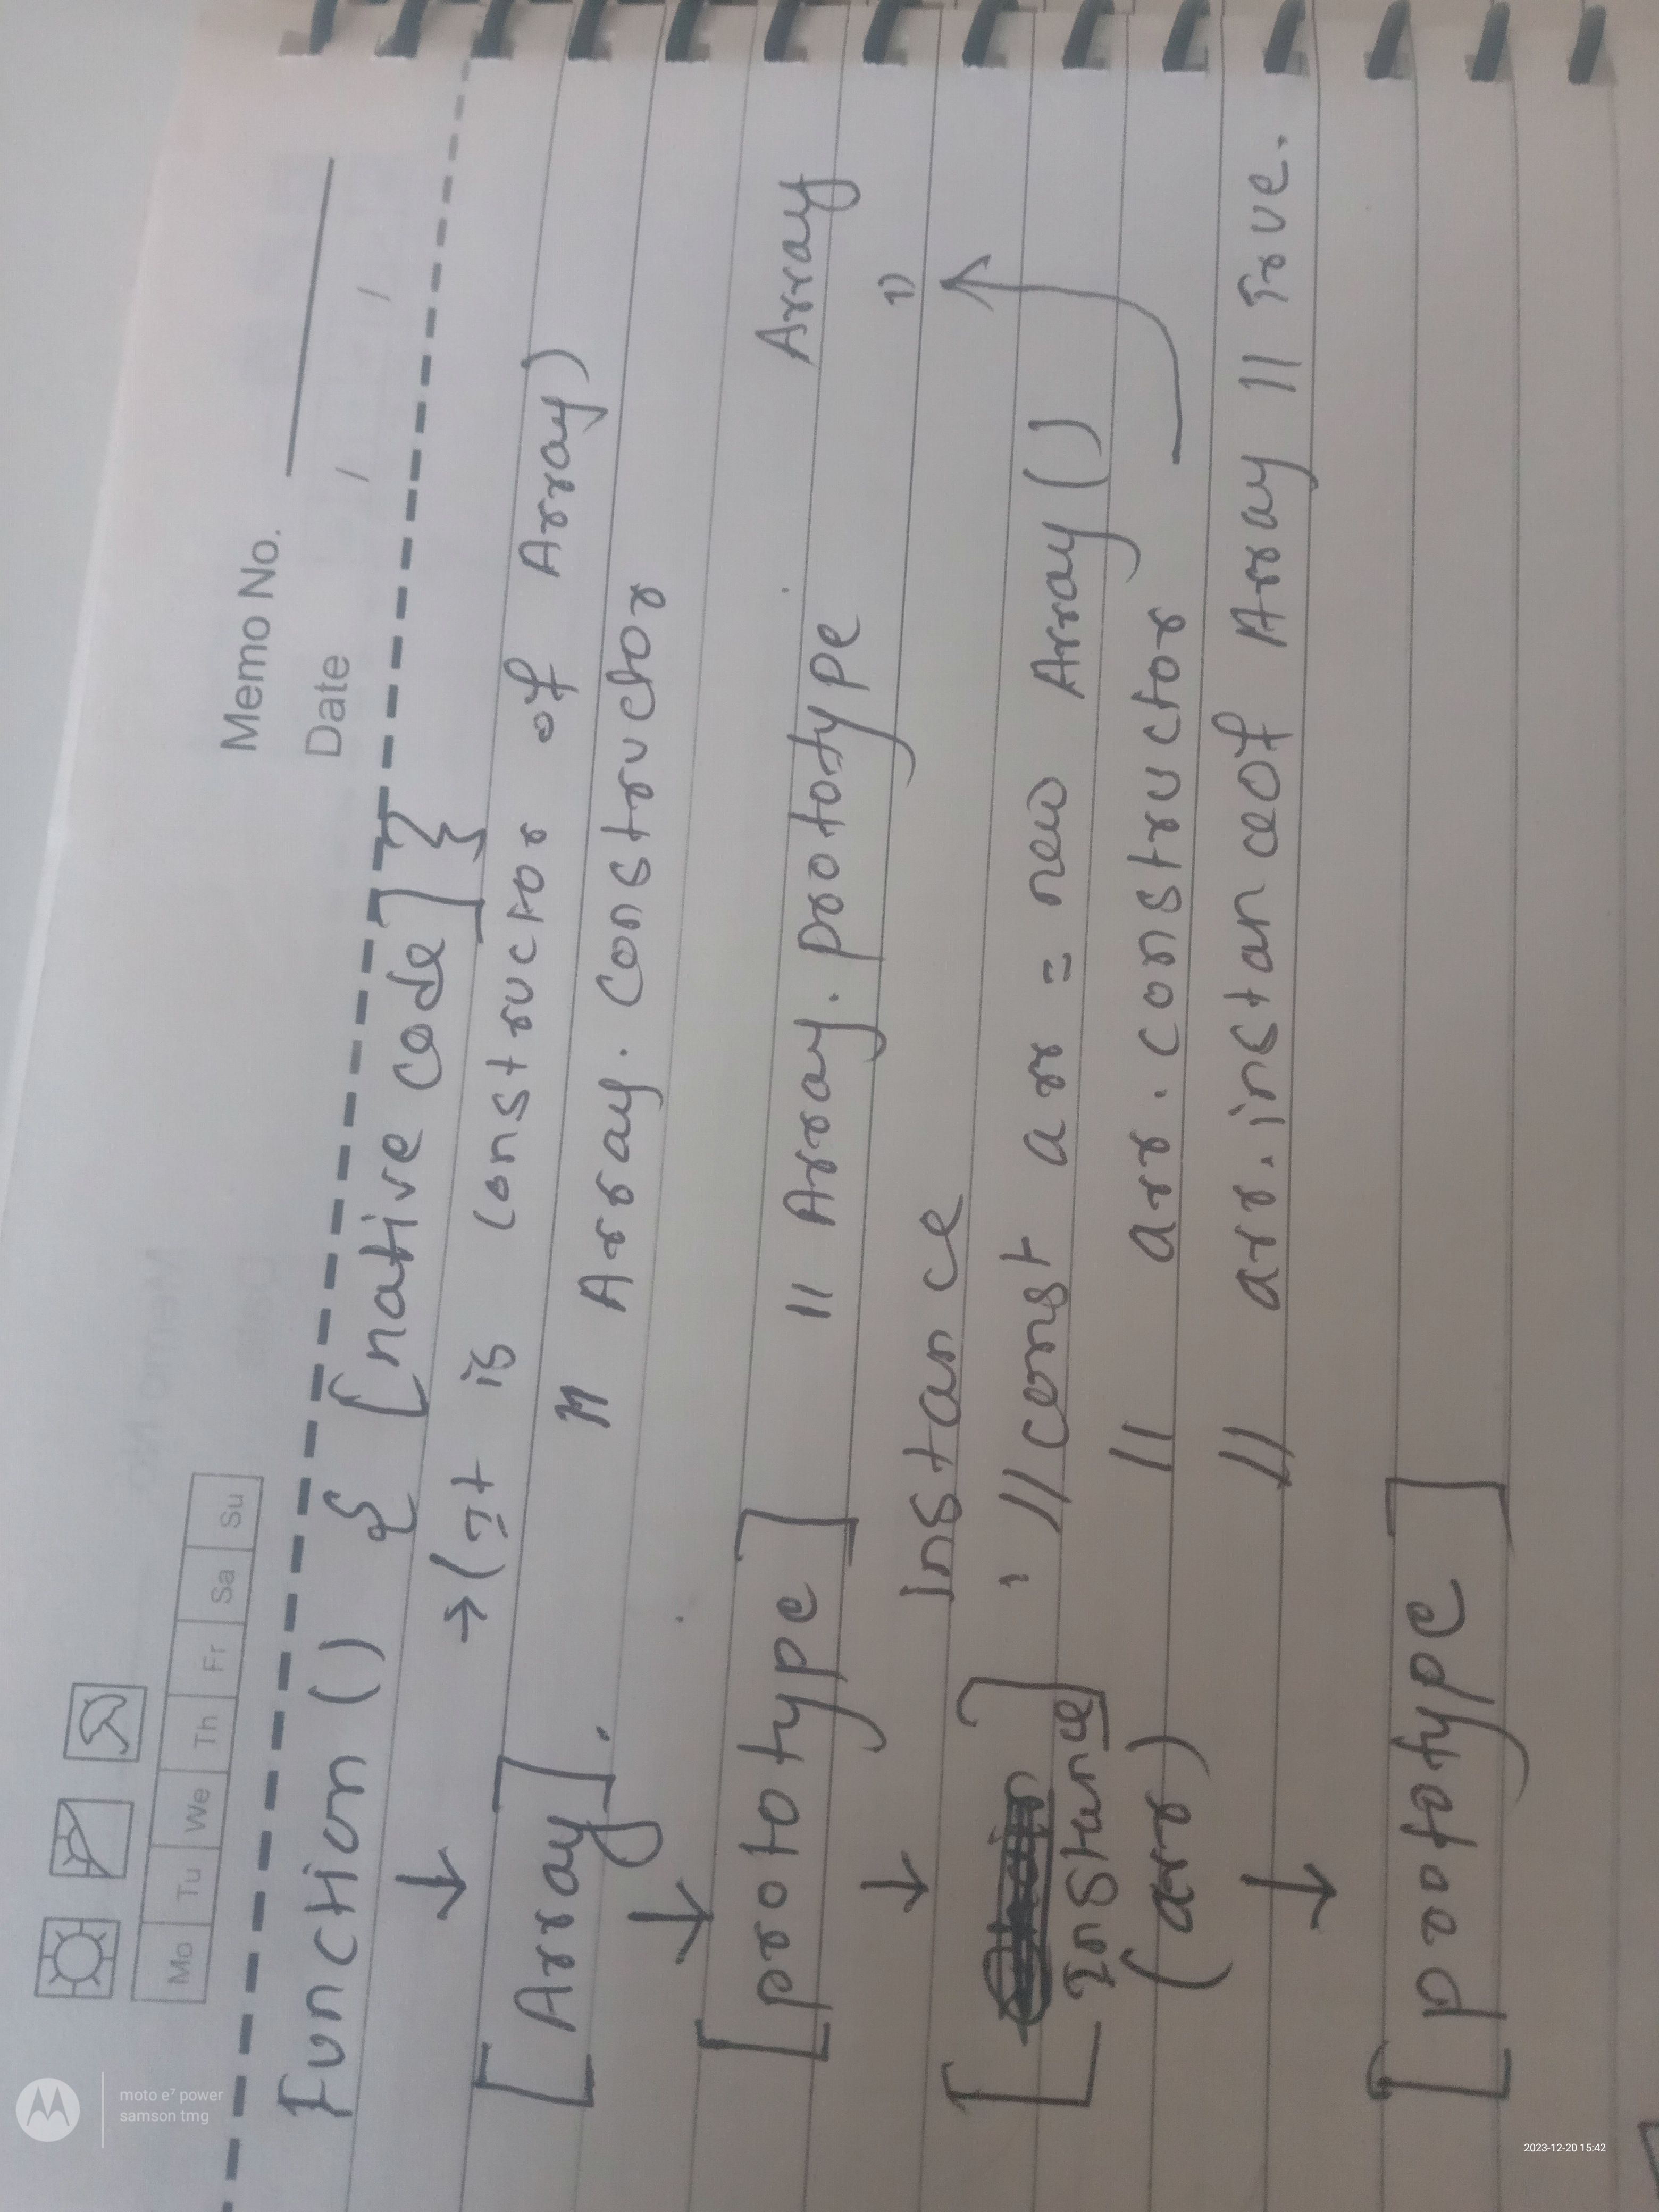 moto e⁷ power
samson tmg
Mo Tu We Th Fr Sa Su
Memo No.
Date / /
Function () { [native code] }
→ (It is constructor of Array)
[Array]. // Array. constructor
[prototype] // Array. prototype
Array
instance
[Instance] // const arr = new Array ()
(arr) // arr. constructor
// arr. instanceof Array // True.
[prototype]
2023-12-20 15:42